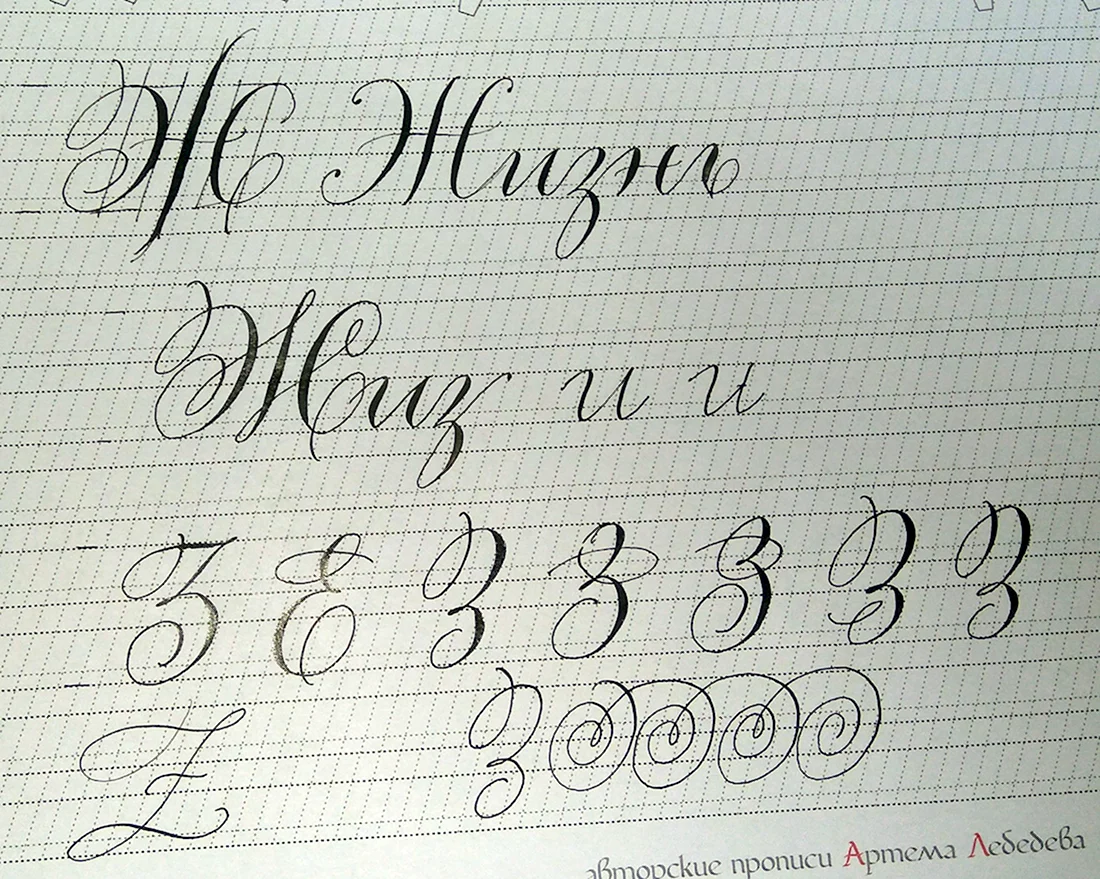 Ж Жизнь
Жиз и и
З Е З З З З З
Z З
авторские прописи Артема Лебедева